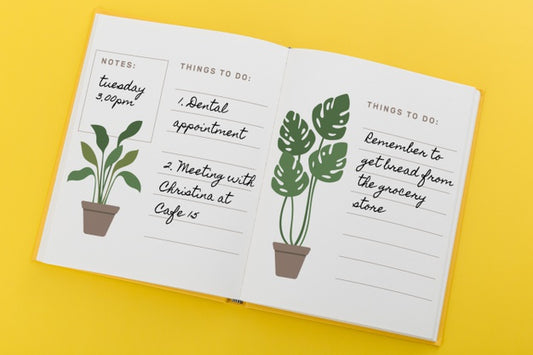 NOTES:
tuesday
3.00pm
THINGS TO DO:
1. Dental
appointment
2. Meeting with
Christina at
Cafe 15
THINGS TO DO:
Remember to
get bread from
the grocery
store